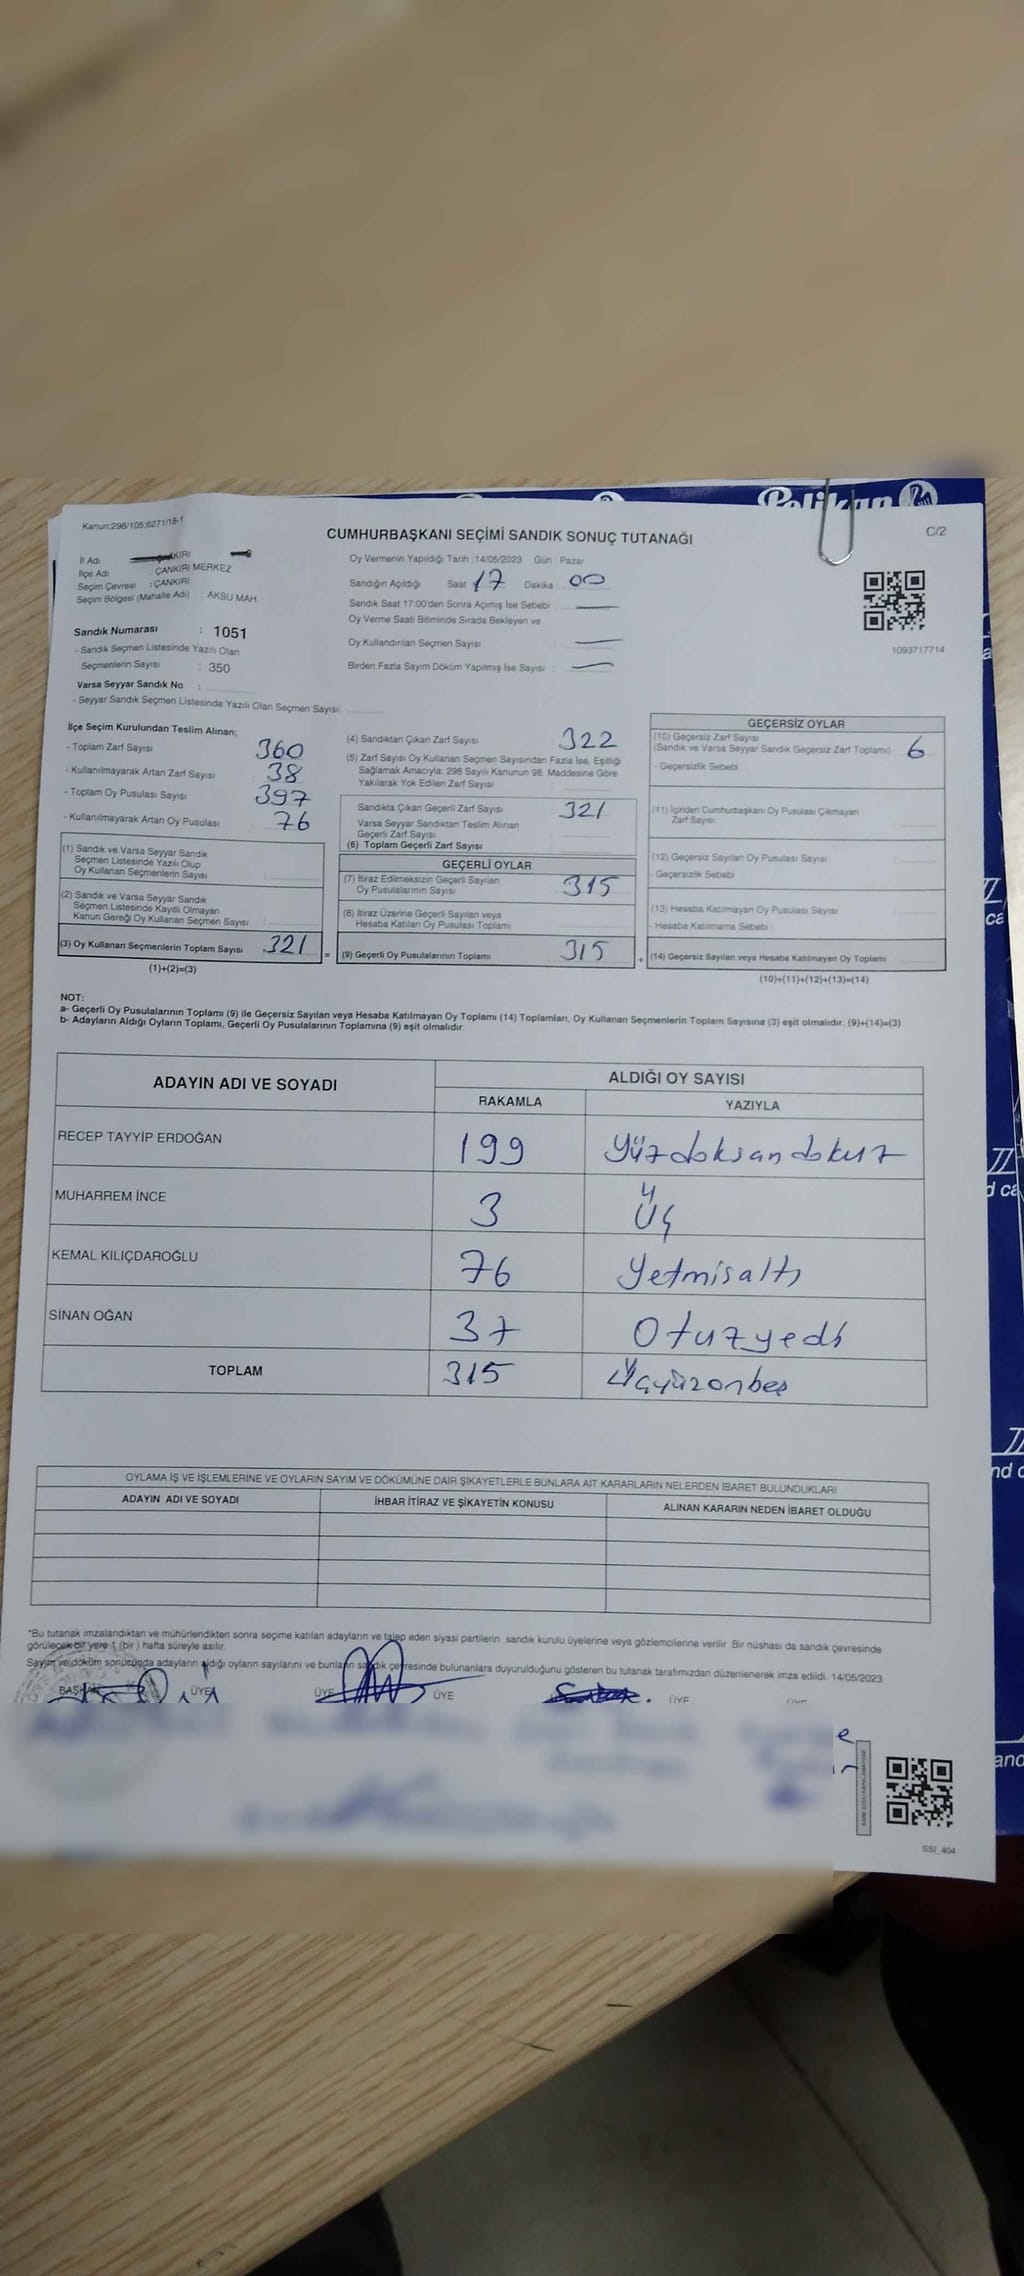 Pelikan
Kanun:298/105;6271/18-1
CUMHURBAŞKANI SEÇİMİ SANDIK SONUÇ TUTANAĞI
C/2
İl Adı ÇANKIRI
İlçe Adı : ÇANKIRI MERKEZ
Seçim Çevresi : ÇANKIRI
Seçim Bölgesi (Mahalle Adı) : AKSU MAH.
Sandık Numarası : 1051
- Sandık Seçmen Listesinde Yazılı Olan
Seçmenlerin Sayısı : 350
Varsa Seyyar Sandık No :
- Seyyar Sandık Seçmen Listesinde Yazılı Olan Seçmen Sayısı:
Oy Vermenin Yapıldığı Tarih : 14/05/2023 Gün : Pazar
Sandığın Açıldığı Saat 17 Dakika 00
Sandık Saat 17:00'den Sonra Açımış İse Sebebi :
Oy Verme Saati Bitiminde Sırada Bekleyen ve
Oy Kullandırılan Seçmen Sayısı :
Birden Fazla Sayım Döküm Yapılmış İse Sayısı :
1093717714
İlçe Seçim Kurulundan Teslim Alınan;
- Toplam Zarf Sayısı 360
- Kullanılmayarak Artan Zarf Sayısı 38
- Toplam Oy Pusulası Sayısı 397
- Kullanılmayarak Artan Oy Pusulası 76
(1) Sandık ve Varsa Seyyar Sandık
Seçmen Listesinde Yazılı Olup
Oy Kullanan Seçmenlerin Sayısı
(2) Sandık ve Varsa Seyyar Sandık
Seçmen Listesinde Kayıtlı Olmayan
Kanun Gereği Oy Kullanan Seçmen Sayısı
(3) Oy Kullanan Seçmenlerin Toplam Sayısı 321 =
(1)+(2)=(3)
(4) Sandıktan Çıkan Zarf Sayısı : 322
(5) Zarf Sayısı Oy Kullanan Seçmen Sayısından Fazla İse, Eşitliği
Sağlamak Amacıyla; 298 Sayılı Kanunun 98. Maddesine Göre
Yakılarak Yok Edilen Zarf Sayısı :
Sandıkta Çıkan Geçerli Zarf Sayısı : 321
Varsa Seyyar Sandıktan Teslim Alınan
Geçerli Zarf Sayısı
(6) Toplam Geçerli Zarf Sayısı
GEÇERLİ OYLAR
(7) İtiraz Edilmeksizin Geçerli Sayılan
Oy Pusulalarının Sayısı : 315
(8) İtiraz Üzerine Geçerli Sayılan veya
Hesaba Katılan Oy Pusulası Toplamı
(9) Geçerli Oy Pusulalarının Toplamı 315 +
GEÇERSİZ OYLAR
(10) Geçersiz Zarf Sayısı
(Sandık ve Varsa Seyyar Sandık Geçersiz Zarf Toplamı) : 6
- Geçersizlik Sebebi
(11) İçinden Cumhurbaşkanı Oy Pusulası Çıkmayan
Zarf Sayısı
(12) Geçersiz Sayılan Oy Pusulası Sayısı :
- Geçersizlik Sebebi
(13) Hesaba Katılmayan Oy Pusulası Sayısı :
- Hesaba Katılmama Sebebi :
(14) Geçersiz Sayılan veya Hesaba Katılmayan Oy Toplamı
(10)+(11)+(12)+(13)=(14)
NOT:
a- Geçerli Oy Pusulalarının Toplamı (9) ile Geçersiz Sayılan veya Hesaba Katılmayan Oy Toplamı (14) Toplamları, Oy Kullanan Seçmenlerin Toplam Sayısına (3) eşit olmalıdır. (9)+(14)=(3)
b- Adayların Aldığı Oyların Toplamı, Geçerli Oy Pusulalarının Toplamına (9) eşit olmalıdır.
ADAYIN ADI VE SOYADI ALDIĞI OY SAYISI
RAKAMLA YAZIYLA
RECEP TAYYİP ERDOĞAN 199 Yüzdoksandokuz
MUHARREM İNCE 3 Üç
KEMAL KILIÇDAROĞLU 76 Yetmisaltı
SİNAN OĞAN 37 Otuzyedi
TOPLAM 315 Üçyüzonbeş
OYLAMA İŞ VE İŞLEMLERİNE VE OYLARIN SAYIM VE DÖKÜMÜNE DAİR ŞİKAYETLERLE BUNLARA AİT KARARLARIN NELERDEN İBARET BULUNDUKLARI
ADAYIN ADI VE SOYADI İHBAR İTİRAZ VE ŞİKAYETİN KONUSU ALINAN KARARIN NEDEN İBARET OLDUĞU
*Bu tutanak imzalandıktan ve mühürlendikten sonra seçime katılan adayların ve talep eden siyasi partilerin sandık kurulu üyelerine veya gözlemcilerine verilir. Bir nüshası da sandık çevresinde
görülecek bir yere 1 (bir ) hafta süreyle asılır.
Sayım ve döküm sonucunda adayların aldığı oyların sayılarını ve bunların sandık çevresinde bulunanlara duyurulduğunu gösteren bu tutanak tarafımızdan düzenlenerek imza edildi. 14/05/2023
BAŞKAN ÜYE ÜYE ÜYE ÜYE ÜYE
SSI_404